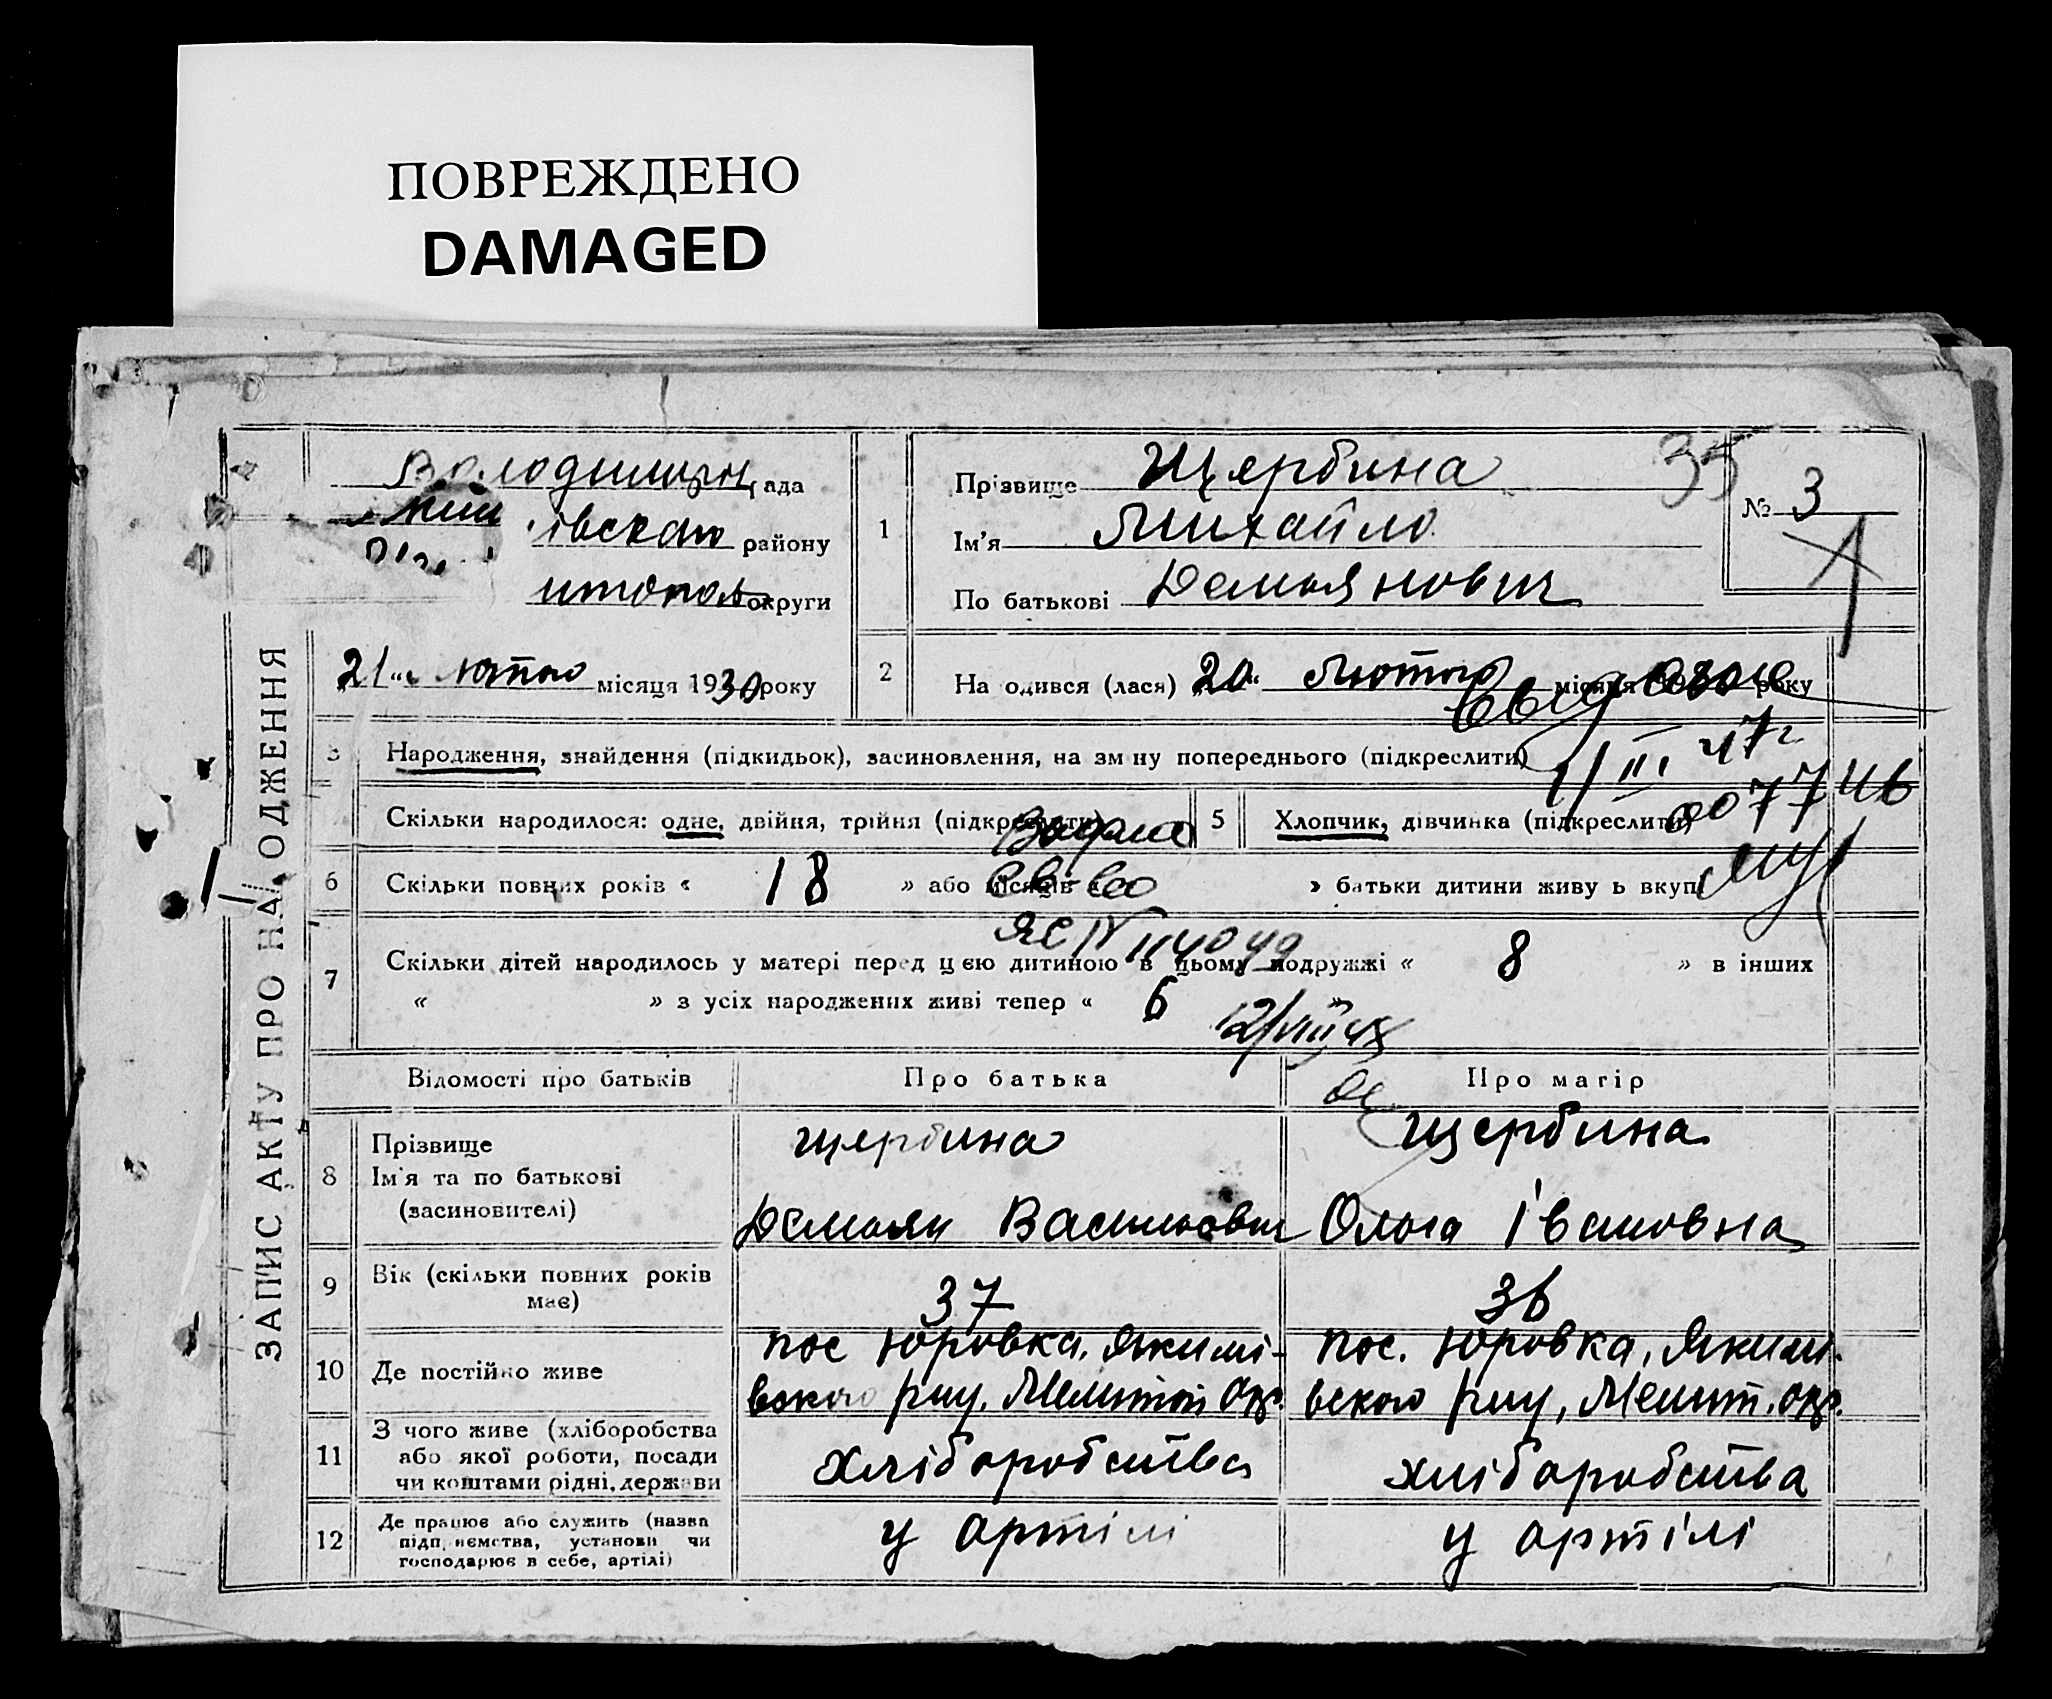 ПОВРЕЖДЕНО
DAMAGED
ЗАПИС АКТУ ПРО НА ОДЖЕННЯ
рада
івского району
итопол округи
21 " лютого місяця 1930 року
1
Прізвище Щербина
Ім'я Михайло
По батькові Демьянович
35
№ 3
2
На одився (лася) 20 " Лютого місяця року
выдано
1/III 47г
007746
3
Народження, знайдення (підкидьок), засиновлення, на зм ну попереднього (підкреслити)
Скільки народилося: одне, двійня, трійня (підкреслити)
5
Хлопчик, дівчинка (підкреслити)
6
Скільки повних років « 18 » або місяців « » батьки дитини живу ь вкупі
Видано
св-во
ЯС № 114049
12/VIII 48
7
Скільки дітей народилось у матері перед цією дитиною в цьому подружжі « 8 » в інших
« » з усіх народжених живі тепер « 6 »
Відомості про батьків
Про батька
Про матір
8
Прізвище
Ім'я та по батькові
(засиновителі)
Щербина
Демьян Васильович
Щербина
Ольга Івановна
9
Вік (скільки повних років
має)
37
36
10
Де постійно живе
пос Юровка, Якимі-
вского р-ну, Мелитоп Окр.
пос. Юровка, Якимі-
вского р-ну, Мелит. окр.
11
З чого живе (хліборобства
або якої роботи, посади
чи коштами рідні, держави
хліборобства
хліборобства
12
Де працює або служить (назва
підп иємства, установи чи
господарює в себе, артілі)
у артілі
у артілі